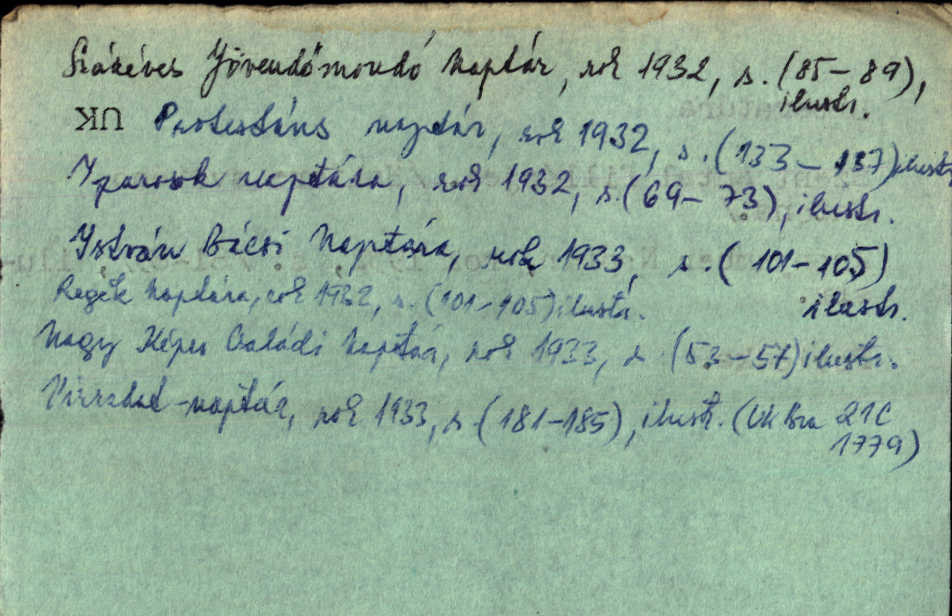 Százéves Jövendőmondó Naptár, rok 1932, s. (85-89), ilustr.
UK Protestáns naptár, rok 1932, s. (133-137) ilustr.
Iparosok naptára, rok 1932, s. (69-73), ilustr.
István Bácsi Naptára, rok 1933, s. (101-105) ilustr.
Regék Naptára, rok 1932, s. (101-105) ilustr.
Nagy Képes Családi Naptár, rok 1933, s. (53-57) ilustr.
-naptár, rok 1933, s. (181-185), ilustr. (UK Bra 21C
1779)